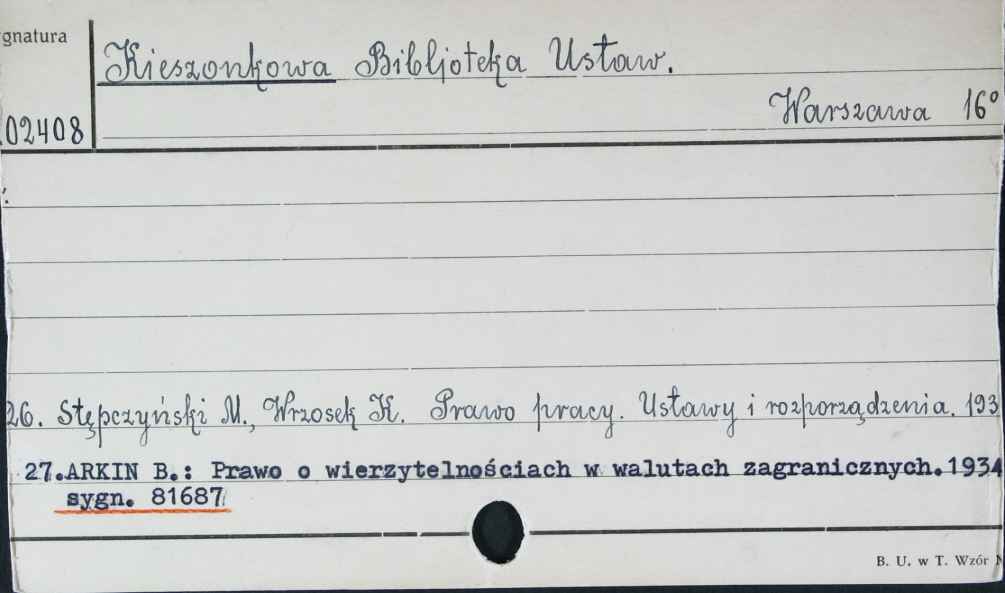 gnatura
Kieszonkowa Bibljoteka Ustaw.
Warszawa 16°
02408
26. Stępczyński M., Wrzosek K. Prawo pracy. Ustawy i rozporządzenia. 193
27.ARKIN B.: Prawo o wierzytelnościach w walutach zagranicznych.1934
sygn. 81687
B. U. w T. Wzór